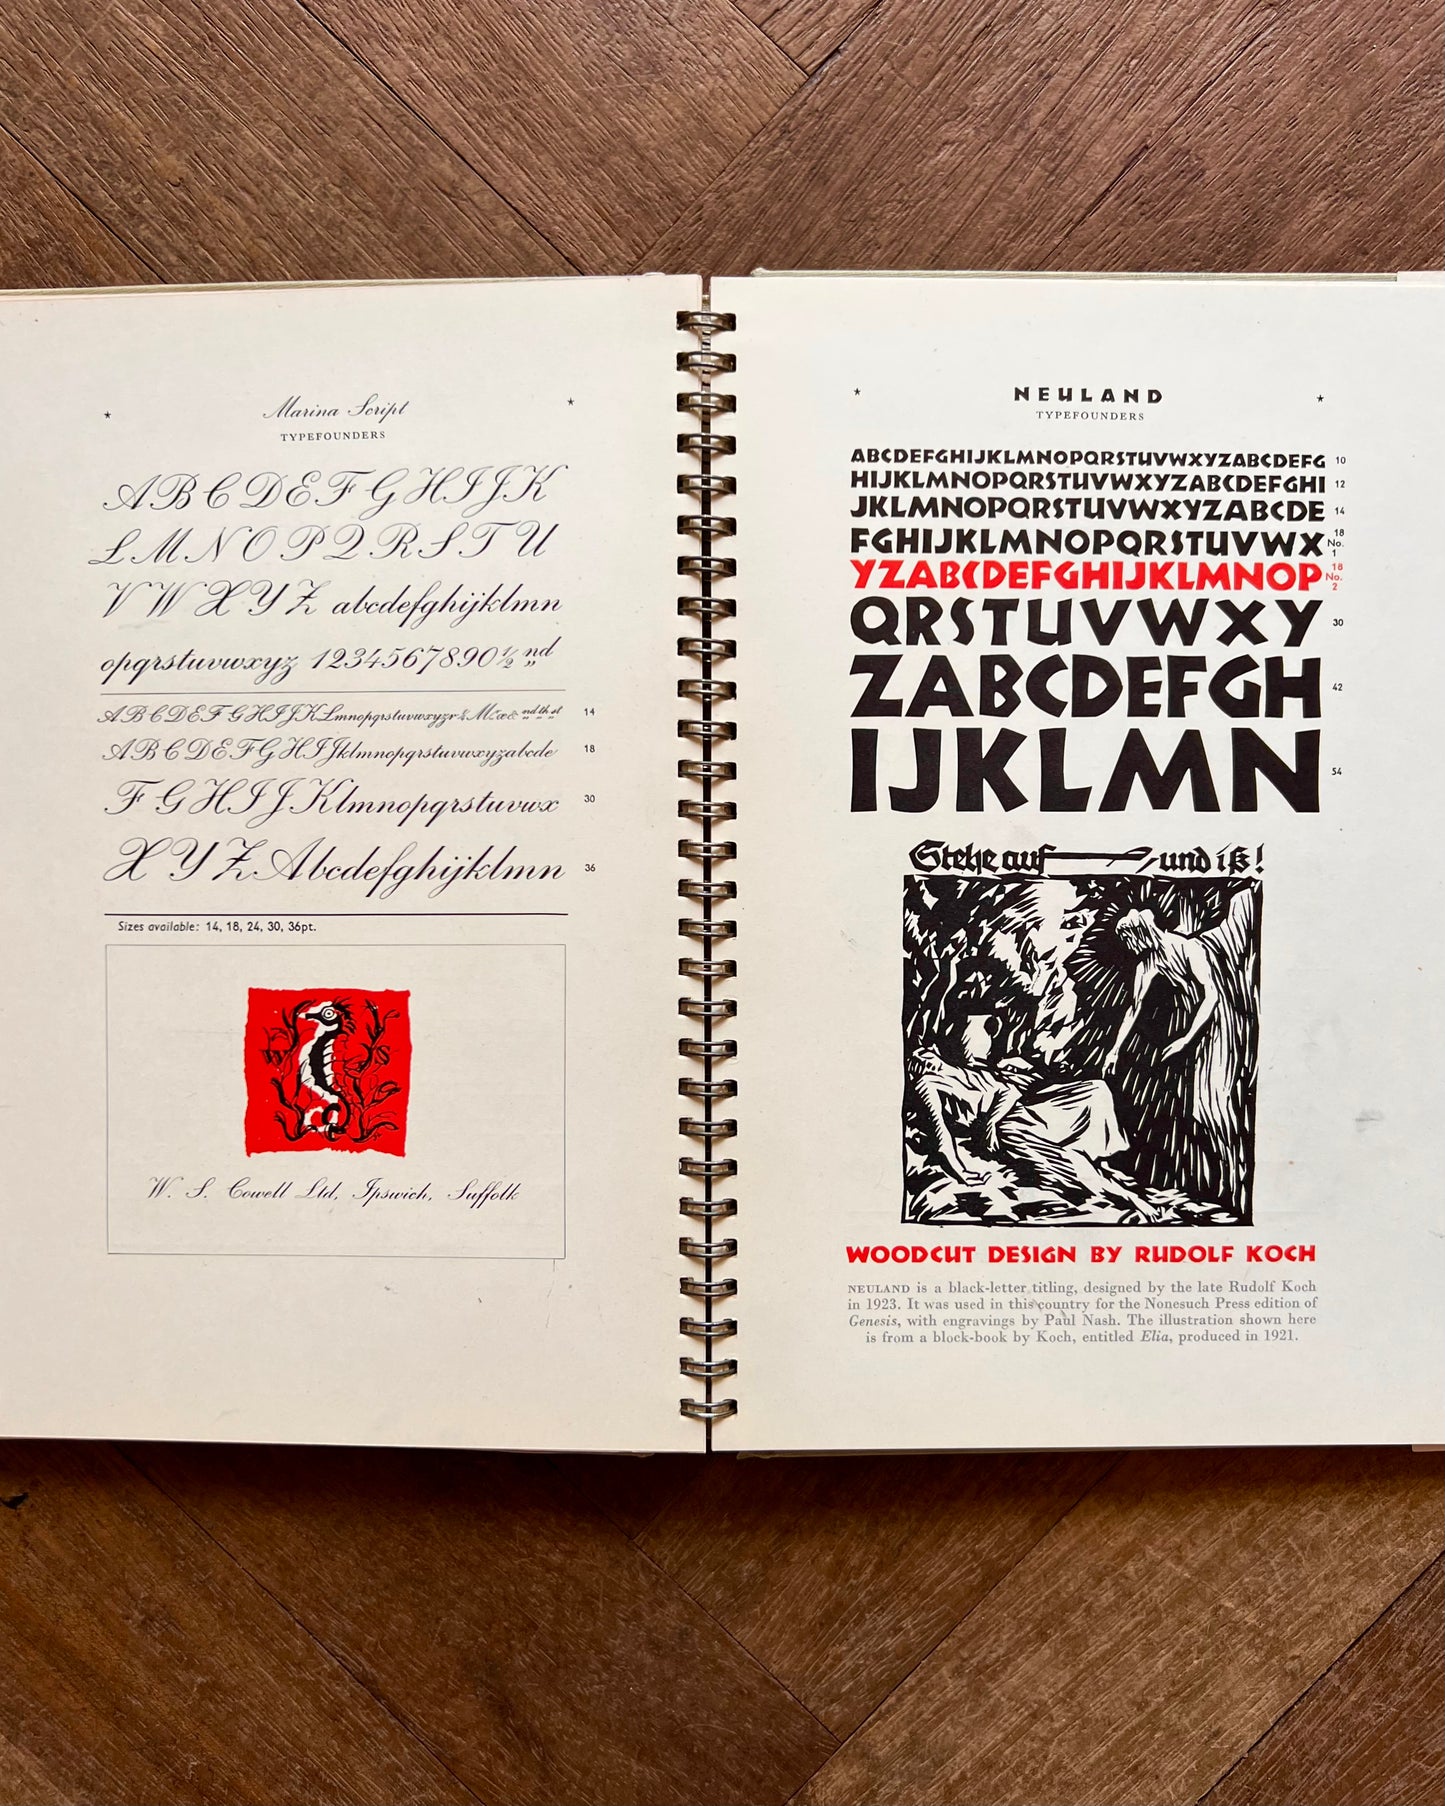 Marina Script
TYPEFOUNDERS
ABCDEFGHIJK
LMNOPQRSTU
VWXYZ abcdefghijklmn
opqrstuvwxyz 1234567890 ½ nd
ABCDEFGHIJKLmnopqrstuvwxyzr& nd th st 14
ABCDEFGHIJklmnopqrstuvwxyzabcde 18
FGHIJKlmnopqrstuvwx 30
XYZAbcdefghijklmn 36
Sizes available: 14, 18, 24, 30, 36pt.
W. S. Cowell Ltd, Ipswich, Suffolk
NEULAND
TYPEFOUNDERS
ABCDEFGHIJKLMNOPQRSTUVWXYZABCDEFG 10
HIJKLMNOPQRSTUVWXYZABCDEFGHI 12
JKLMNOPQRSTUVWXYZABCDE 14
FGHIJKLMNOPQRSTUVWX 18 No. 1
YZABCDEFGHIJKLMNOP 18 No. 2
QRSTUVWXY 30
ZABCDEFGH 42
IJKLMN 54
Stehe auf und iß!
WOODCUT DESIGN BY RUDOLF KOCH
NEULAND is a black-letter titling, designed by the late Rudolf Koch
in 1923. It was used in this country for the Nonesuch Press edition of
Genesis, with engravings by Paul Nash. The illustration shown here
is from a block-book by Koch, entitled Elia, produced in 1921.